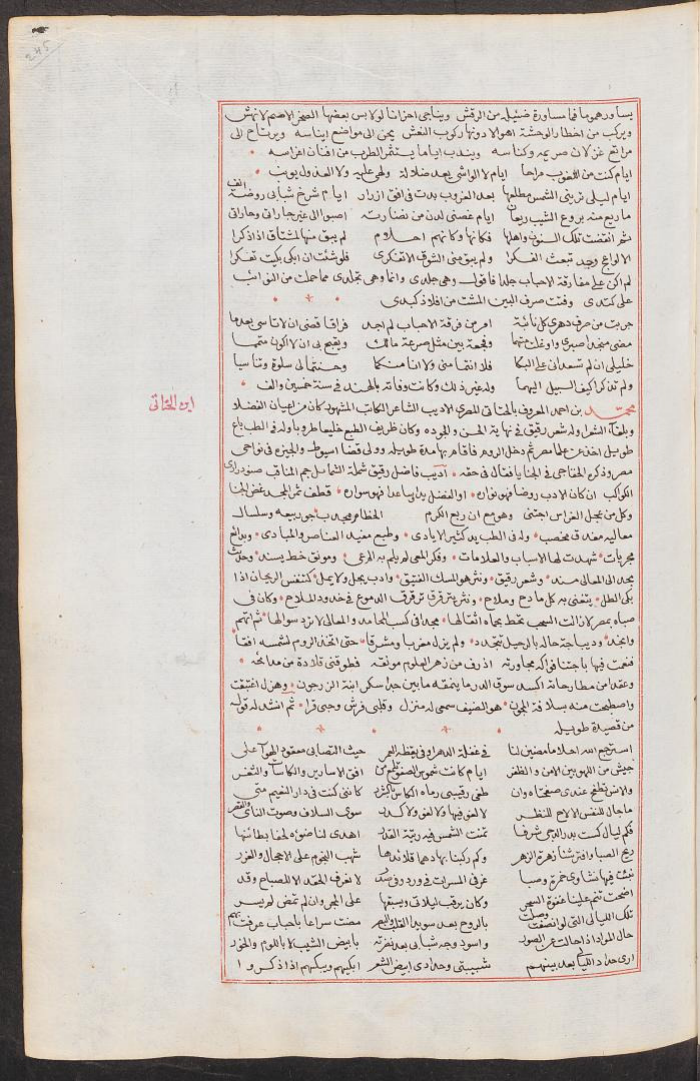 245
يساورهموما فما مساورة ضئيلة من الرقش ويناجي احزانا لو لابس بعضها الصخر الاصم لانهش
ويركب من اخطار الوحشة اهوالا دونها ركوب النعش يحن الى مواضع ايناسه ويرتاح الى
مراتع غزلان صريمه وكناسه ويندب اياما يستثمر الطرب من افنان اغراسه
ايام كنت من اللغوب مراحا ايام لا الواشي يعد ضلالة ولهي عليه ولا العذول يونب
ايام ليلى تريني الشمس مطلعها بعد الغروب بدت في افق ازرار ايام شرخ شبابي روضة انف
ما ريع منه بروع الشيب ريعان ايام غصني لدن من نضارته اصبوا الى غير جاراتي وحاراتي
ثم انقضت تلك السنون واهلها فكانها وكانهم احلام لم يبق منها لمشتاق اذا ذكرا
الا لواعج وجد تبعث الفكرا ولم يبق مني الشوق الا تفكري فلو شئت ان ابكي بكيت تفكرا
لم اكن على مفارقة الاحباب جلدا فاقول وهي جلدي وانما وهي تجلدي مما حملت من النوائب
على كتدي وفتت صرف البين المشت من افلاذ كبدي
جربت من صرف دهري كل نائبة امر من فرقة الاحباب لم اجد فراقا قضى ان لا تاسى بعدما
مضى منجدا صبري واوغلت متهما وفجعة بين مثل صرعة مالك ويقبح بي ان لا اكون متمما
خليلي ان لم تسعداني على البكا فلا انتما مني ولا انا منكما وحسنتما لي سلوة وتناسيا
ولم تذكرا كيف السبيل اليهما وله غير ذلك وكانت وفاته بالهند في سنة خمسين والف
ابن الحتاتي
محمد بن احمد المعروف بالحتاتي المصري الاديب الشاعر الكاتب المشهور كان من اعيان الفضلا
وبلغاء الشعرا وله شعر رقيق في نهاية الحسن والجوده وكان ظريف الطبع خليعا طروبا وله في الطب باع
طويل اخذ عن علما مصر ثم دخل الروم فاقام بها مدة طويله وولى قضا اسيوط والجيزه في نواحي
مصر وذكره الخفاجي في الخبايا فقال في حقه اديب فاضل رقيق شملة الشمايل جم المناقب صنو دراري
الكواكب ان كان الادب روضا فهو نواره او الفضل يدا وساعدا فهو سواره قطف ثمر المجد غض الجنا
وكل من يجعل الغراس اجتنى وهو مع ان ربع الكرم
معاليه مغدق مخصب وله في الطب يد كثير الايادي وطبع مفيد العناصر والمبادي وبدائع
مجربات شهدت لها الاسباب والعلامات وفكر المعي لم يلم به المرعي ومونق خط يسند وحديث
مجد الى المعالي مسند وشعر رقيق ونثر هو المسك الفتيق وادب يجل ولا يمل كتنفس الريحان اذا
بكى الطل يتغنى به كل مادح وملاح ونثر يترقرق ترقرق الدموع في خدود الملاح وكان في
صباه بمصر لا زالت السحب تحط بحماه اثقالها مجدا في كسب المحامد والمعالي لا تزد سوالها ثم اتهم
وانجد وديباجة حاله بالرحيل تتجدد ولم يزل مغربا ومشرقا حتى اتخذ الروم لشمسه افقا
فنعمت فيها باجتنا فواكه مجاورته اذ رف من زهر العلوم مونقه فطوقني قلادة من مدائحه
وعقدا من مطارحاته اكسد سوق الدر ما ينمقه ما بين جد اسكر ابنة الزرجون وهزل اغتبقت
واصطبحت منه بسلافة المجون هو الضيف سمعي له منزل وقلبي فرش وجبي قرا ثم انشد له قوله
من قصيدة طويله
استرجع الله احلاما مضين لنا في غفلة الدهر او في يقظة العمر حيث التصابي معقود اللوا على
جيش من اللهو بين الامن والظفر ايام كانت شموس الصفو تطلع من افق الاسارير والكاسات والثغر
والانس تطفح عندي صفحتاه وان طفى رقيبي رماه الكاس بالشرر كانني كنت في دار النعيم متى
ما جال للنفس الا لاح للنظر لا لغو فيها ولا لغو ولا كدر سوى السلاف وصوت الناي والوتر
فكم ليال كست بدر الدجى شرفا تمنت الشمس فيه رتبة القدر اهدى لنا ضوءه لحفا بطائنها
ريح الصبا وافترشنا زهرة الزهر وكم ركبنا بها دهما قلائدها شهب النجوم على الاحجال والغرر
نبيت فيها نشاوى خمرة وصبا غرقى المسرات في ورد وفي صدر لا نعرف الحقد الا للصباح وقد
اضحت تنم علينا غفوة السحر وكان يرقب ليلاتي ويسبقها على الهجر وان لم تمض لم يسر
تلك الليالي التي لو انصفت وصلت بالروح بعد سويدا القلب والبصر مضت سراعا باحباب عرفت بهم
حال المراد اذا حالت عن الصور واسود وجه شبابي بعد نفرته بابيض الشيب لا باللوم والحور
ارى حداد الليالي بعد بينهم شبيبتي وحدادي ابيض الشعر ابكيهم ويبكيهم اذا ذكروا